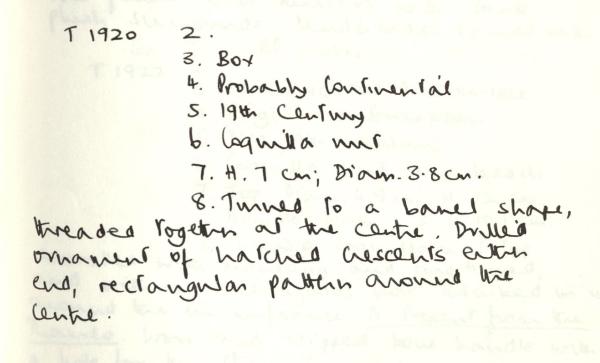 T 1920 2.
3. Box
4. Probably Continental
5. 19th Century
6. Coquilla nut
7. H. 7 cm; Diam. 3.8 cm.
8. Turned to a barrel shape,
threaded together at the centre. Drilled
ornament of hatched crescents either
end, rectangular pattern around the
centre.